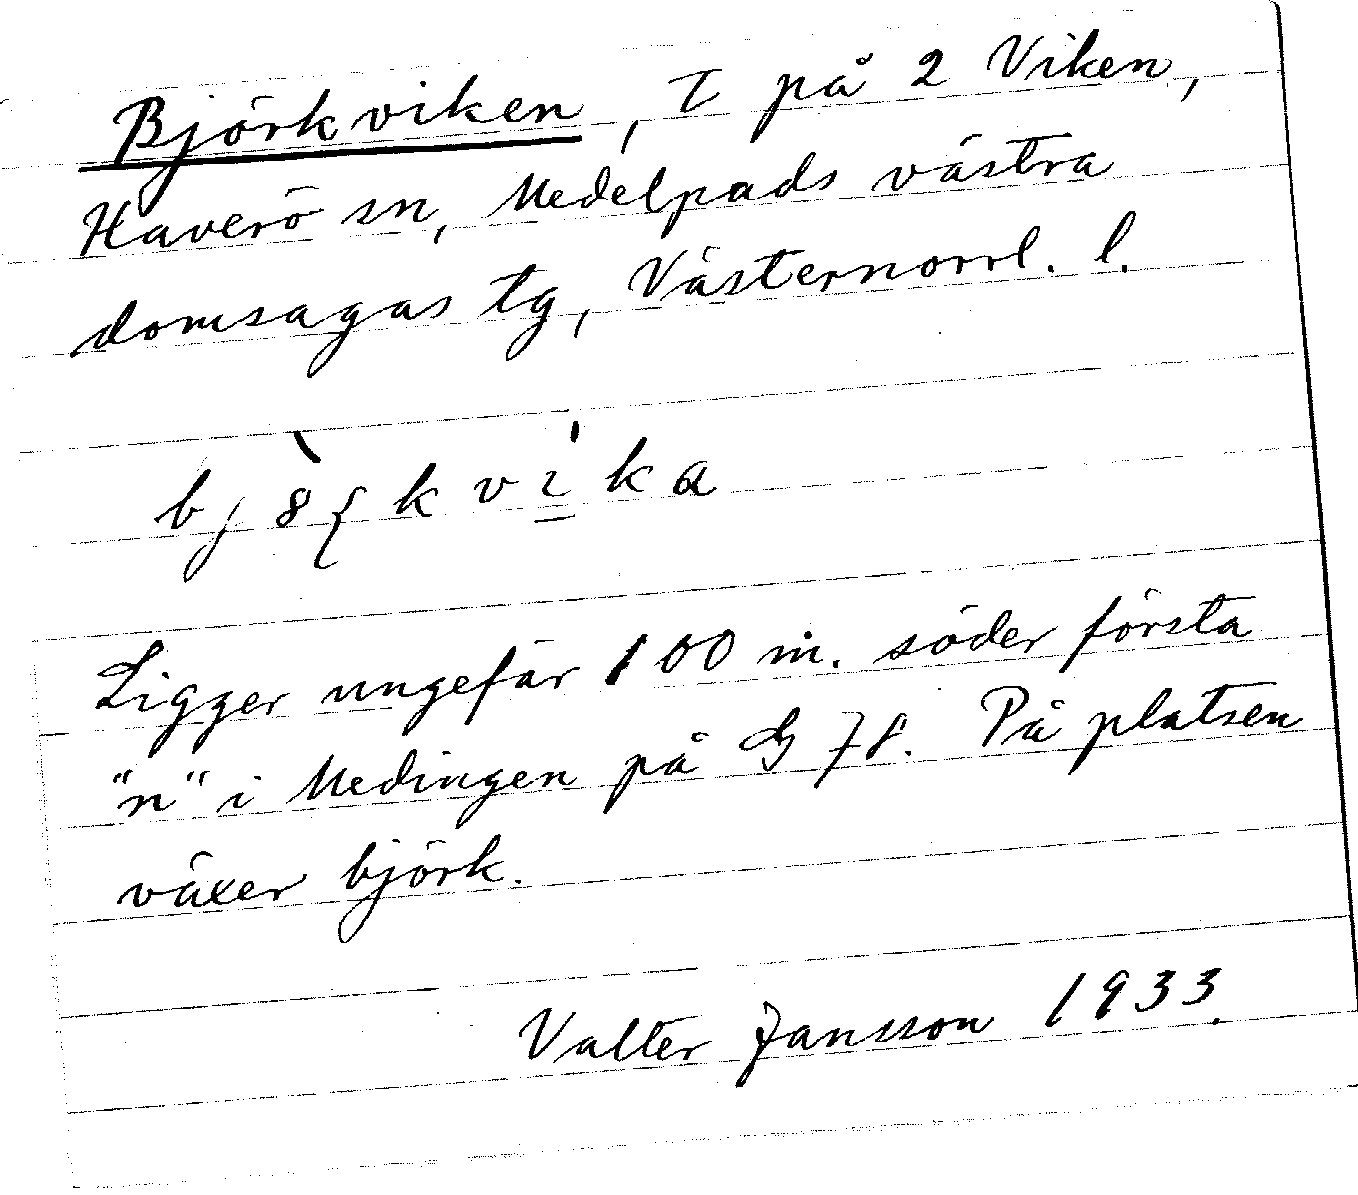 Björkviken, T på 2 Viken,
Haverö sn, Medelpads västra
domsagas tg, Västernorrl. l.
Ligger ungefär 100 m. söder första
"n" i Medingen på G 78. På platsen
växer björk.
Valter Jansson 1933.